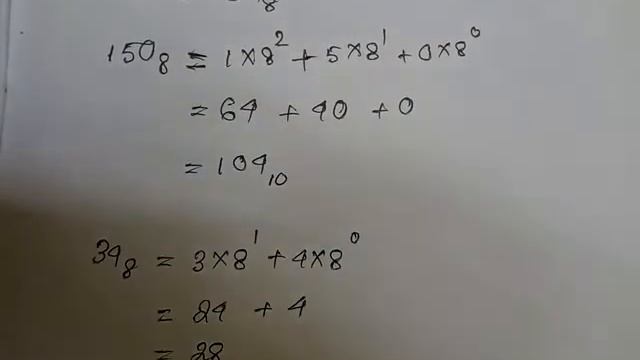 8
150₈ = 1×8² + 5×8¹ + 0×8⁰
= 64 + 40 + 0
= 104₁₀
34₈ = 3×8¹ + 4×8⁰
= 24 + 4
= 28